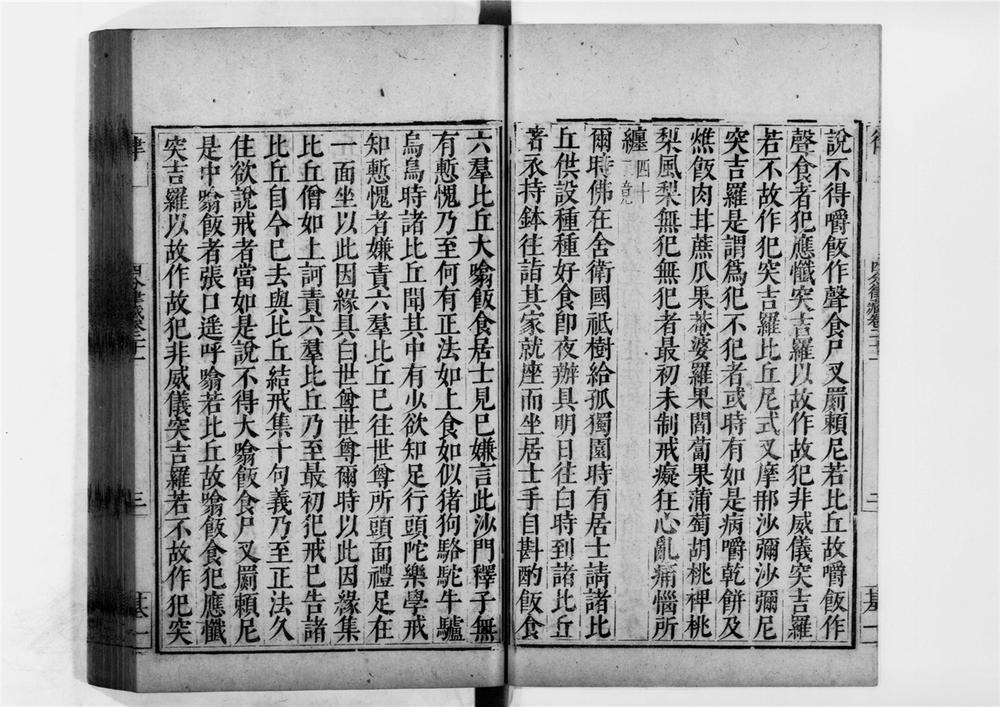 說不得嚼飯作聲食尸叉罽賴尼若比丘故嚼飯作
聲食者犯應懺突吉羅以故作故犯非威儀突吉羅
若不故作犯突吉羅比丘尼式叉摩那沙彌沙彌尼
突吉羅是謂爲犯不犯者或時有如是病嚼乾餅及
燋飯肉甘蔗瓜果菴婆羅果閻蔔果蒲萄胡桃椑桃
梨風梨無犯無犯者最初未制戒癡狂心亂痛惱所
纏 四十
爾時佛在舍衛國祇樹給孤獨園時有居士請諸比
丘供設種種好食即夜辦具明日往白時到諸比丘
著衣持鉢往詣其家就座而坐居士手自斟酌飯食
六羣比丘大噏飯食居士見已嫌言此沙門釋子無
有慙愧乃至何有正法如上食如似猪狗駱駝牛驢
烏鳥時諸比丘聞其中有少欲知足行頭陀樂學戒
知慙愧者嫌責六羣比丘已往世尊所頭面禮足在
一面坐以此因緣具白世尊世尊爾時以此因緣集
比丘僧如上訶責六羣比丘乃至最初犯戒已告諸
比丘自今已去與比丘結戒集十句義乃至正法久
住欲說戒者當如是說不得大噏飯食尸叉罽賴尼
是中噏飯者張口遥呼噏若比丘故噏飯食犯應懺
突吉羅以故作故犯非威儀突吉羅若不故作犯突
三
基一